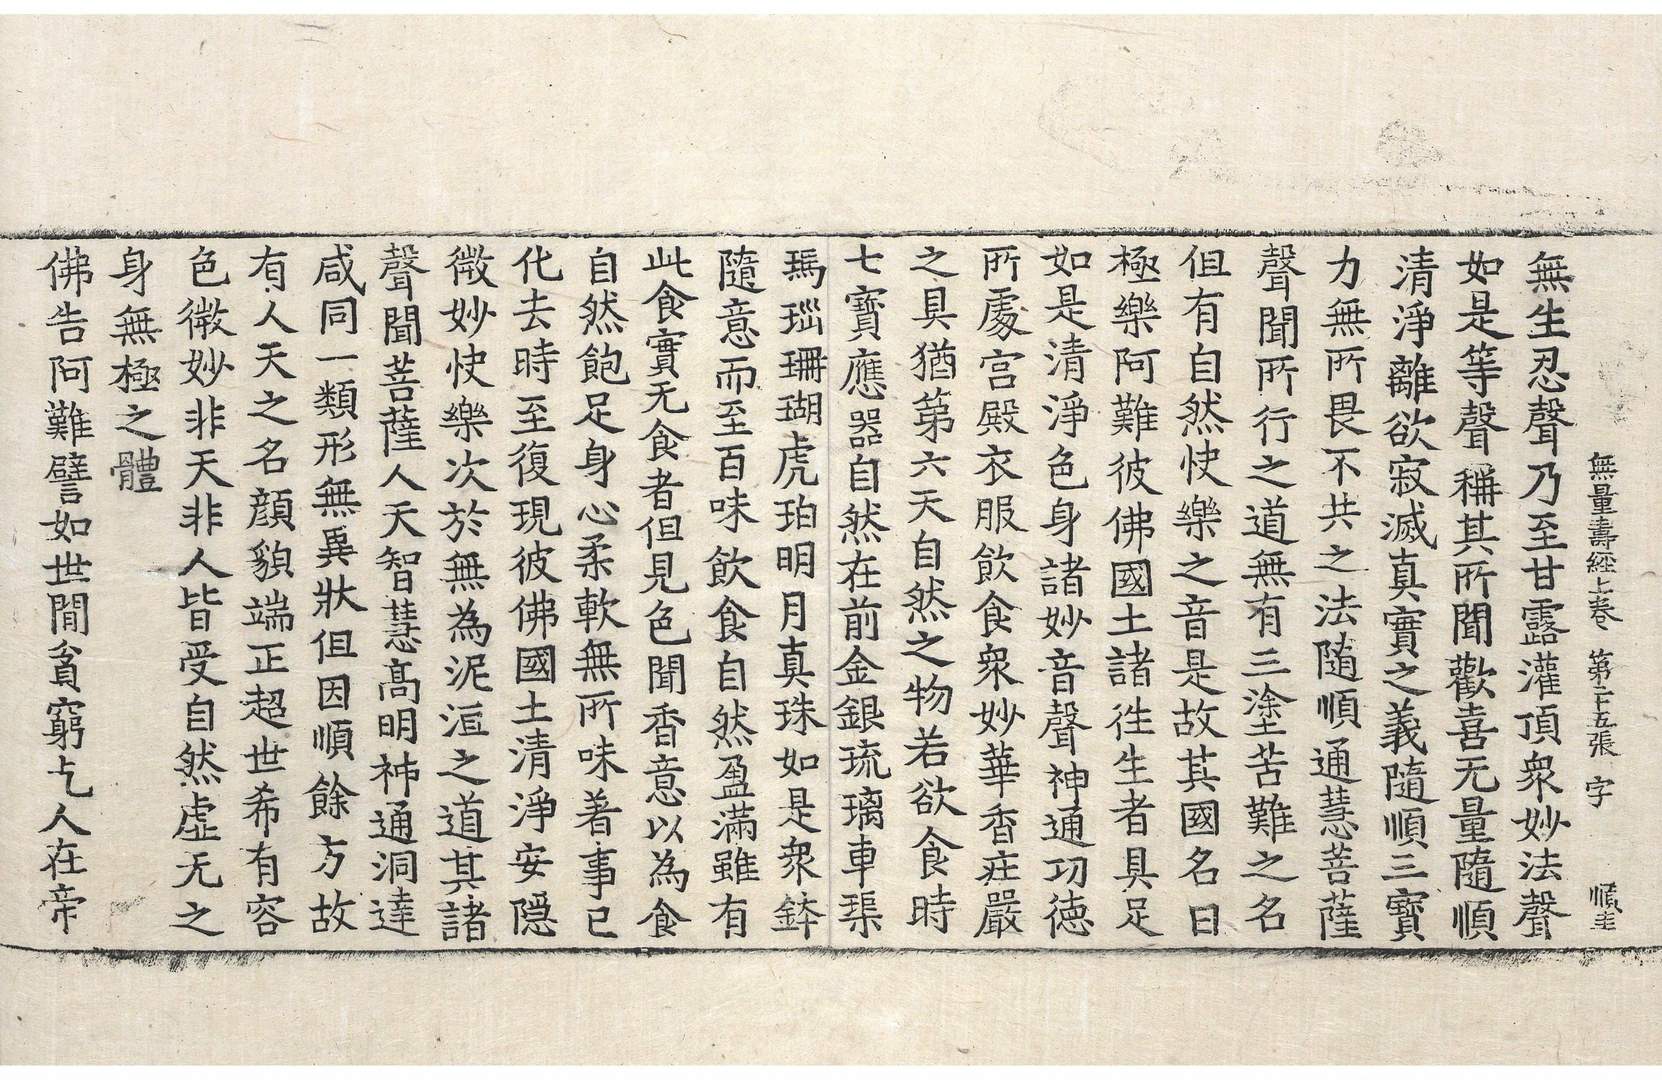 無量壽經上卷 第二十五張 字 順圭
無生忍聲乃至甘露灌頂衆妙法聲
如是等聲稱其所聞歡喜无量隨順
清淨離欲寂滅真實之義隨順三寶
力無所畏不共之法隨順通慧菩薩
聲聞所行之道無有三塗苦難之名
但有自然快樂之音是故其國名曰
極樂阿難彼佛國土諸往生者具足
如是清淨色身諸妙音聲神通功德
所處宮殿衣服飲食衆妙華香庄嚴
之具猶第六天自然之物若欲食時
七寶應器自然在前金銀琉璃車𤦲
瑪瑙珊瑚虎珀明月真珠如是衆鉢
隨意而至百味飲食自然盈滿雖有
此食實无食者但見色聞香意以為食
自然飽足身心柔軟無所味著事已
化去時至復現彼佛國土清淨安隱
微妙快樂次於無為泥洹之道其諸
聲聞菩薩人天智慧高明神通洞達
咸同一類形無異狀但因順餘方故
有人天之名顔貌端正超世希有容
色微妙非天非人皆受自然虛无之
身無極之體
佛告阿難譬如世間貧窮乞人在帝